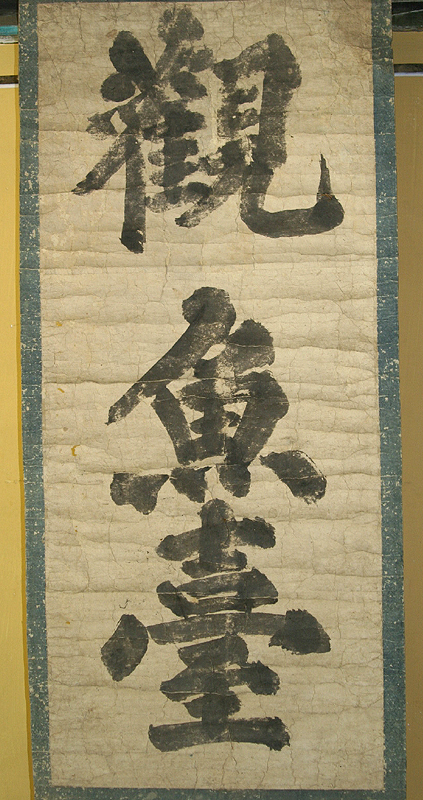 觀魚臺